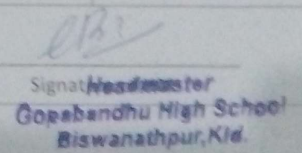 Signat Headmaster
Gopabandhu High School
Biswanathpur, Kld.